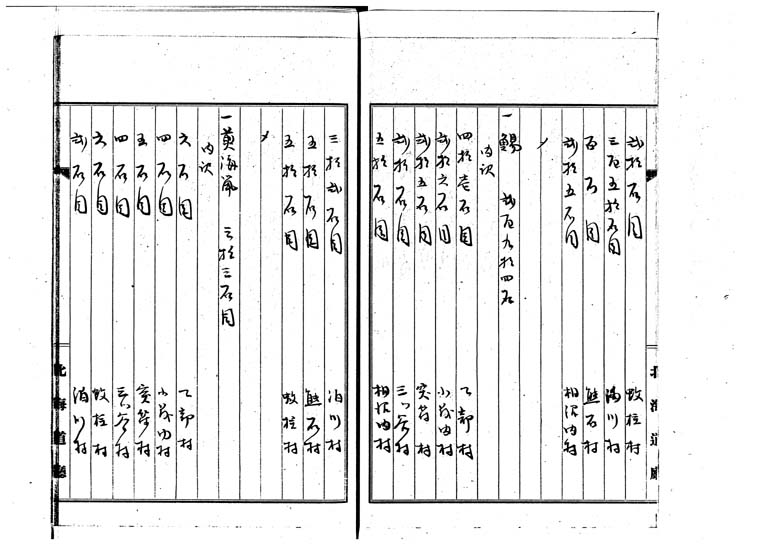 弐拾石目 蚊柱村
三百五拾石目 泊川村
百石目 熊石村
弐拾五石目 相沼内村
〆
一鯣 弐百九拾四石
内訳
四拾壱石目 乙部村
弐拾六石目 小茂内村
弐拾五石目 突符村
弐拾石目 三ツ谷村
五拾石目 相沼内村
北海道廳
三拾弐石目 泊川村
五拾石目 熊石村
五拾石目 蚊柱村
〆
一黄海鼠 三拾三石目
内訳
六石目 乙部村
四石目 小茂内村
五石目 突符村
四石目 三ツ谷村
六石目 蚊柱村
弐石目 泊川村
北海道廳